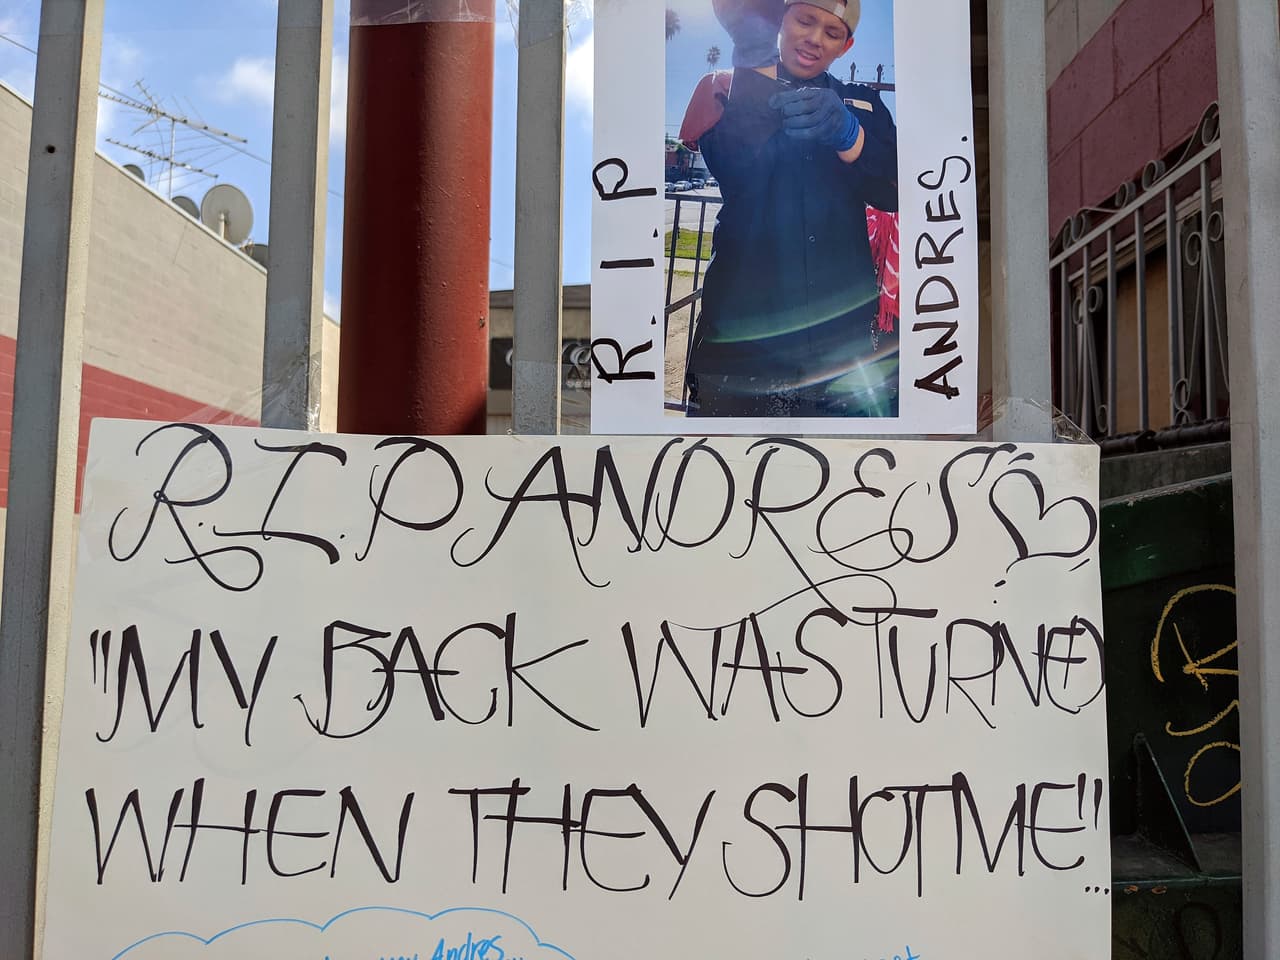 R.I.P
ANDRES.
R.I.P ANDRES
"MY BACK WAS TURNED
WHEN THEY SHOT ME"...
Andres...